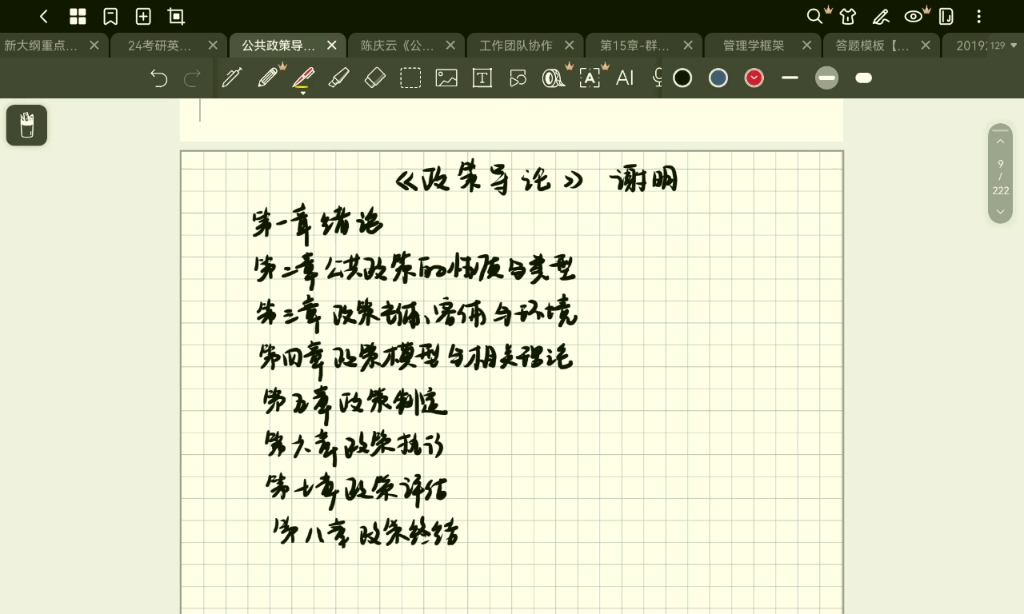 新大纲重点... 24考研英... 公共政策导... 陈庆云《公... 工作团队协作 第15章-群... 管理学框架 答题模板【... 2019; 129
T A AI
9
/
222
《政策导论》 谢明
第一章绪论
第二章公共政策的性质与类型
第三章政策主体、客体与环境
第四章政策模型与相关理论
第五章政策制定
第六章政策执行
第七章政策评估
第八章政策终结